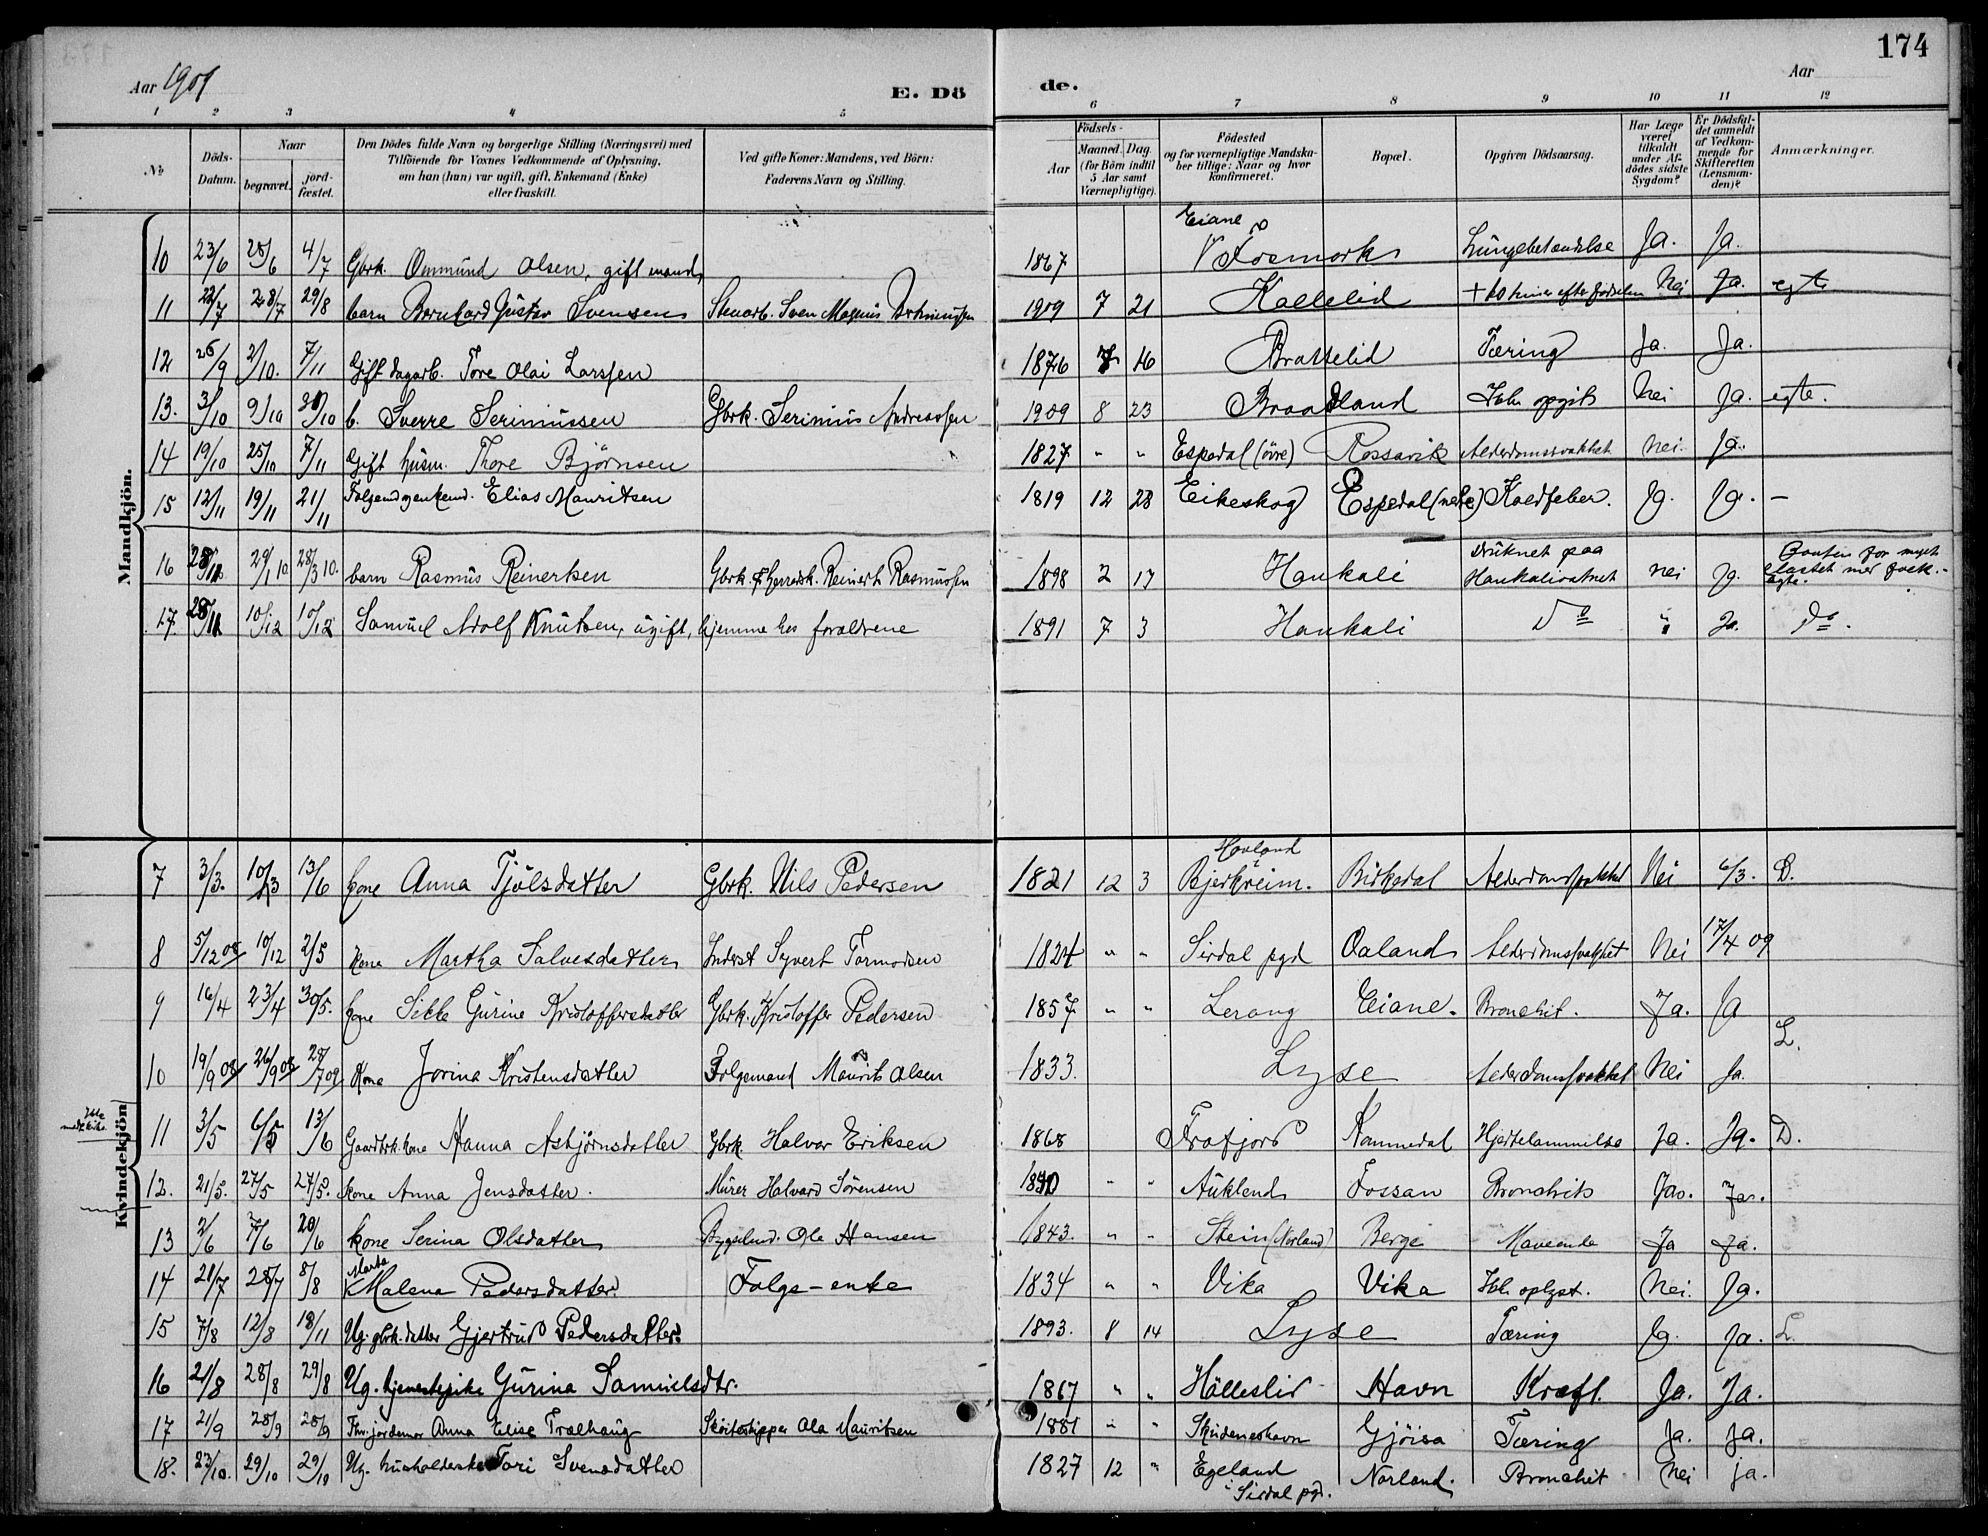 174
Aar 1909
E. Dö
de.
Aar
1 2 3 4 5 6 7 8 9 10 11 12
No
Döds-Datum.
Naar
begravet.
jord-fæstet.
Den Dödes fulde Navn og borgerlige Stilling (Næringsvei) med
Tilföiende for Voxnes Vedkommende af Oplysning,
om han (hun) var ugift, gift, Enkemand (Enke)
eller fraskilt.
Ved gifte Koner: Mandens, ved Börn:
Faderens Navn og Stilling.
Födsels-
Aar
Maaned. Dag
(for Börn indtil
5 Aar samt
Værnepligtige).
Födested
og for værnepligtige Mandska-
ber tillige: Naar og hvor
konfirmeret.
Bopæl.
Opgiven Dödsaarsag.
Har Læge
været
tilkaldt
under Af-
dödes sidste
Sygdom?
Er Dödsfal-
det anmeldt
af Vedkom-
mende for
Skifteretten
(Lensman-
den)?
Anmærkninger.
Mandkjön.
10 23/6 28/6 4/7 Gbrk. Ommund Olsen, gift mand 1867 Eiane Fosmork Lungebetændelse Ja. Ja.
11 22/7 28/7 29/8 barn Bernhard Gustav Svensen Stenarb. Sven Magnus 1909 7 21 Kallelid efter fødselen Nei Ja. egte
12 26/9 2/10. 7/11 Gift dagarb. Tore Olai Larssen 1876 7 16 Brattelid Tæring Ja. Ja.
13. 3/10 9/10 31/10 b. Sverre Serimussen Gbrk. Serinius Andreassen 1909 8 23 Braadland Ikke opgit Nei Ja. egte.
14 19/10 25/10 7/11 Gift husm. Thore Bjørnsen 1827 " " Espedal (övre) Rossavik Alderdomssvakhet Nei. Ja.
15 12/11 19/11 21/11 Folgemd og enkemd. Elias Mauritsen 1819 12 28 Eikeskog Espedal (nedre) Koldfeber. Ja. Ja. –
16 28/12 29/1 10 28/3 10. barn Rasmus Reinertsen Gbrk. Reinert Rasmussen 1898 2 17 Haukali Druknet paa Haukalivatnet nei Ja. Baaten for myet lastet med folk. - Egte.
17. 28/12 10/12 10/12 Samuel Adolf Knutsen, ugift, hjemme hos forældrene 1891 7 3 Haukali Do " Ja. Do.
Kvindekjön
7 3/3. 10/3 13/6 kone Anna Tjölsdatter Gbrk. Nils Pedersen 1821 12 3 Hovland i Bjerkreim. Birkedal Alderdomssvakhet Nei 6/3. D.
8 5/12 08 10/12 2/5 kone Martha Salvesdatter Inderst Syvert Tormodsen 1824 " " Sirdal pgd Oaland Alderdomssvakhet Nei 17/4 09
9 16/4 23/4 30/5. kone Sille Gurine Kristoffersdatter Gbrk. Kristoffer Pedersen 1857 " " Lerang Eiane. Bronchit. Ja. Ja
10 19/9 08 26/9 08 28/7 09 Kone Jorina Kristensdatter Folgemand Maurits Olsen 1833. Lyse Alderdomssvakhet Nei Ja. L.
11 3/5 6/5 13/6 Gaardbrk. kone Hanna Asbjørnsdatter Gbrk. Halvor Eriksen 1868 Frafjord Kommedal Hjertelammelse Ja. Ja. D.
12. 21/5. 27/5 27/5. kone Anna Jensdatter. Murer Halvard Sörensen 1840 " " Aukland Fossan Bronchit Ja. Ja.
13 2/6 7/6 20/6 kone Serina Olsdatter Bygselmd. Ole Hansen 1843. " " Stein (Norland) Berge Maveonde Ja Ja.
14 21/7 28/7 8/8 Marta Malena Pedersdatter. Folge-enke 1834 " " Vika Vika Ikke oplyst. Nei. Ja.
15 7/8 12/8 18/11 Ug. gbrk. datter Gjertrud Pedersdatter 1893. 8 14 Lyse Tæring Ja. Ja. L.
16 21/8 28/8 29/8 Ug. tjenestepike Gurina Samuelsdtr. 1867 " " Hölleslid Havn Kræft. Ja. Ja.
17 21/9 28/9 28/9 Fhv. jordemor Anna Elise Trælhaug Skøiteskipper Ola Mauritsen 1881 " " Skudeneshavn Gjöisa Tæring Ja. Ja.
18. 23/10. 29/10 29/10 Ug. husholderske Tori Svensdatter 1827 12 " Egeland i Sirdal pgd. Norland. Bronchit Nei ja.